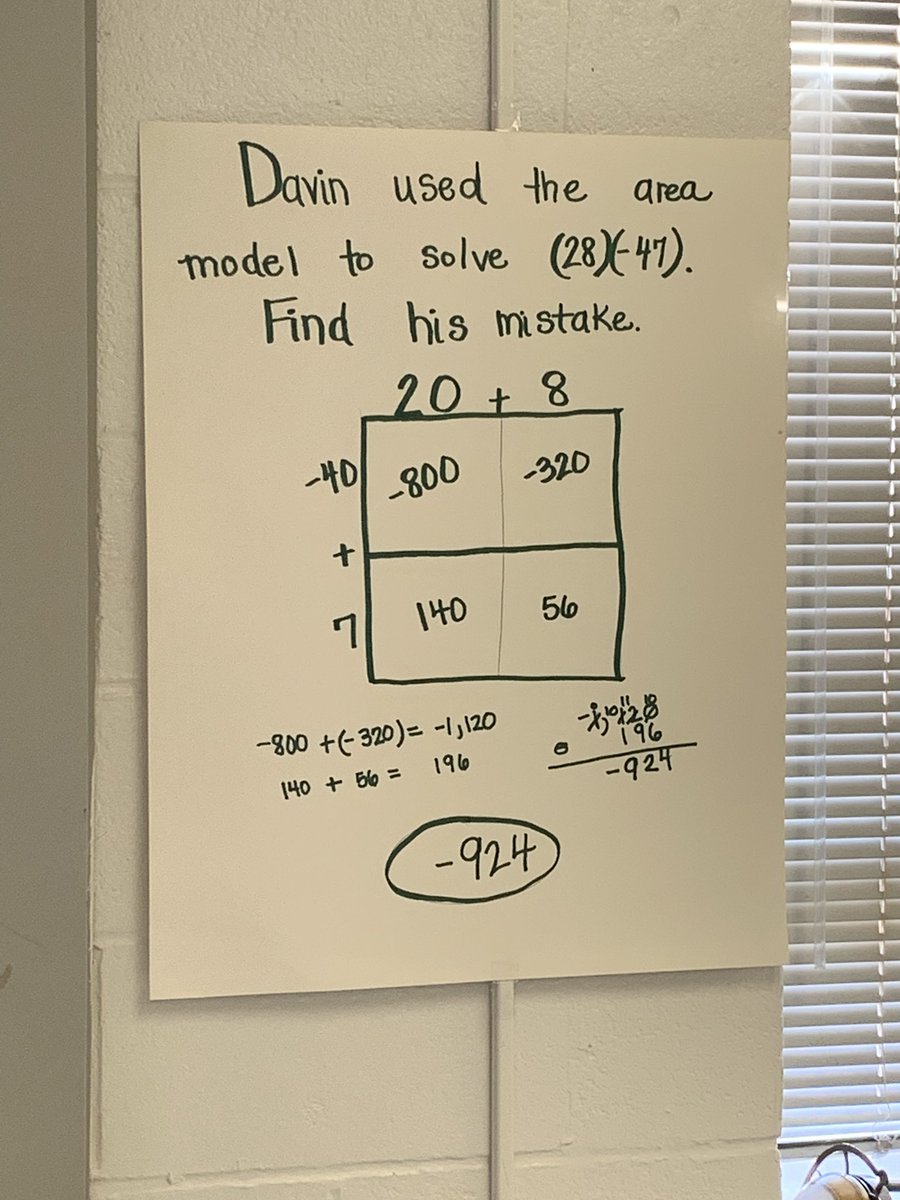 Davin used the area
model to solve (28)(-47).
Find his mistake.
20 + 8
-40 -800 -320
+
7 140 56
-800 + (-320) = -1,120
140 + 56 = 196
10 11 10
-1,120
196
-924
-924